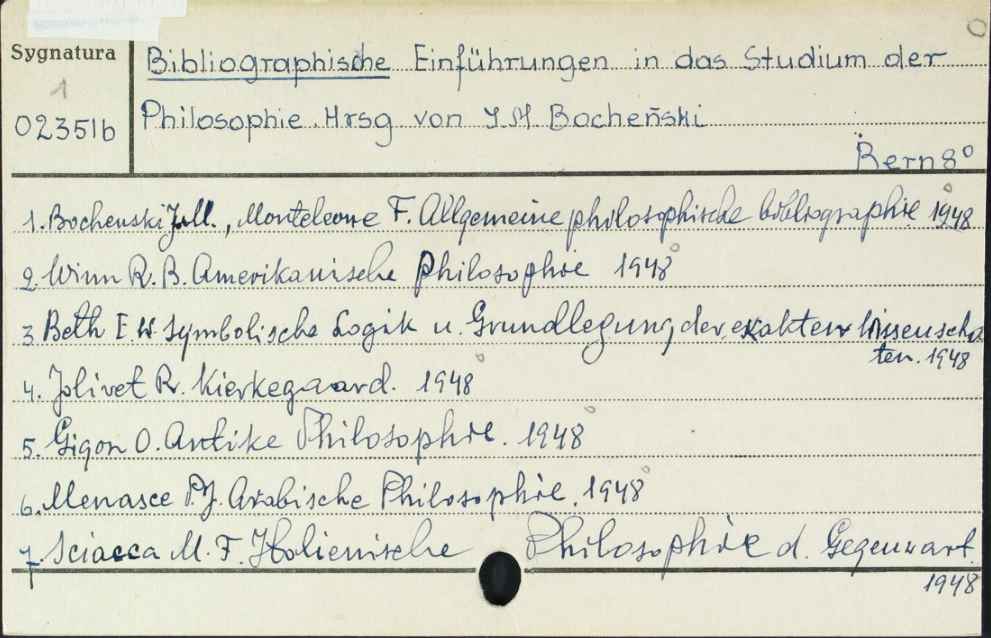 Sygnatura
1
023516
Bibliographische Einführungen in das Studium der
Philosophie. Hrsg von J M Bocheński
Bern 8°
1. Bochenski J.M., Monteleone F. Allgemeine philosophische bibliographie 1948
2. Winn R. B. Amerikanische Philosophie 1948
3 Beth E. W. Symbolische Logik u. Grundlegung der exakten Wissenscha
ten. 1948
4. Jolivet R. Kierkegaard. 1948
5. Gigon O. Antike Philosophie. 1948
6. Menasce P.J. Arabische Philosophie. 1948
7. Sciacca M. F. Italienische Philosophie d. Gegenwart.
1948